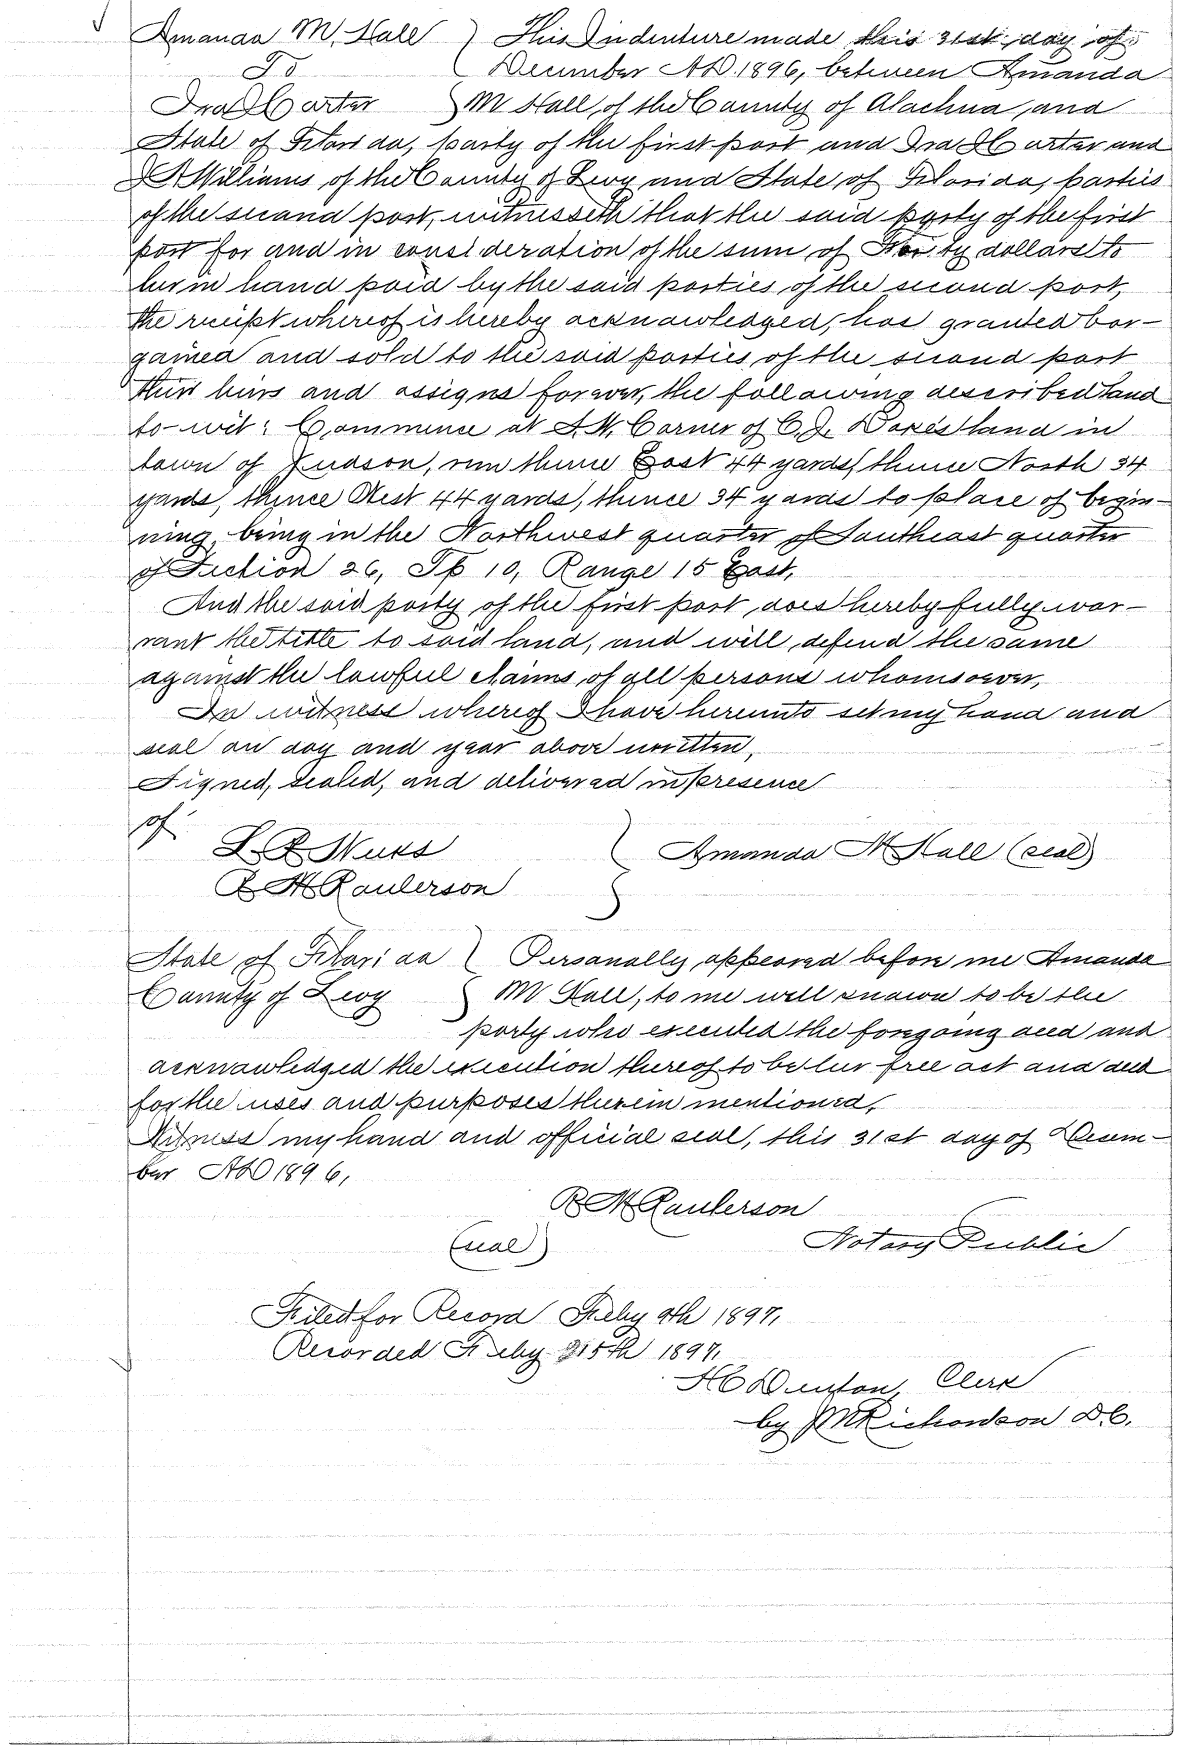 Amanda M. Hall } This Indenture made this 31st day of
To December AD. 1896, between Amanda
Ira J Carter } M Hall, of the County of Alachua, and
State of Florida, party of the first part and Ira J Carter and
Williams of the County of Levy and State of Florida, parties
of the second part, witnesseth that the said party of the first
part for and in consideration of the sum of dollars to
her in hand paid by the said parties of the second part,
the receipt whereof is hereby acknowledged, has granted bar-
gained and sold to the said parties of the second part
their heirs and assigns forever, the following described land
to-wit: Commence at S.W. Corner of C. J. land in
town of Judson, run thence East 44 yards, thence North 34
yards, thence West 44 yards, thence 34 yards to place of begin-
ning, being in the Northwest quarter of Southeast quarter
of Section 26, Tp 10, Range 15 East.
And the said party of the first part, does hereby fully war-
rant the title to said land, and will defend the same
against the lawful claims of all persons whomsoever,
In witness whereof I have hereunto set my hand and
seal on day and year above written,
Signed, sealed, and delivered in presence
of
L. R Amanda M Hall (seal)
R M Raulerson
State of Florida } Personally appeared before me Amanda
County of Levy } M Hall, to me well known to be the
party who executed the foregoing deed and
acknowledged the execution thereof to be her free act and deed
for the uses and purposes therein mentioned,
Witness my hand and official seal, this 31st day of Decem-
ber AD 1896,
R M Raulerson
(seal) Notary Public
Filed for Record Feby 9th 1897,
Recorded Feby 15th 1897,
H C Denton, Clerk
by J M Richardson D.C.